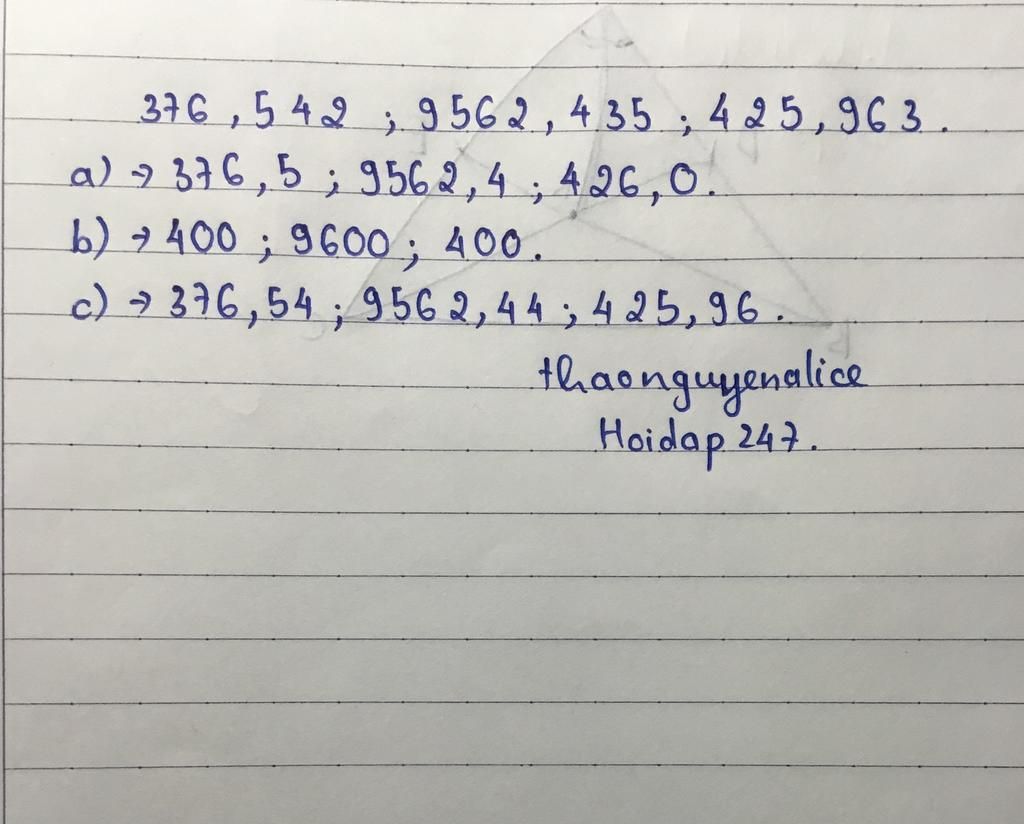 376,542 ; 9562,435 ; 425,963.
a) → 376,5 ; 9562,4 ; 426,0.
b) → 400 ; 9600 ; 400.
c) → 376,54 ; 9562,44 ; 425,96.
thaonguyenalice
Hoidap 247.